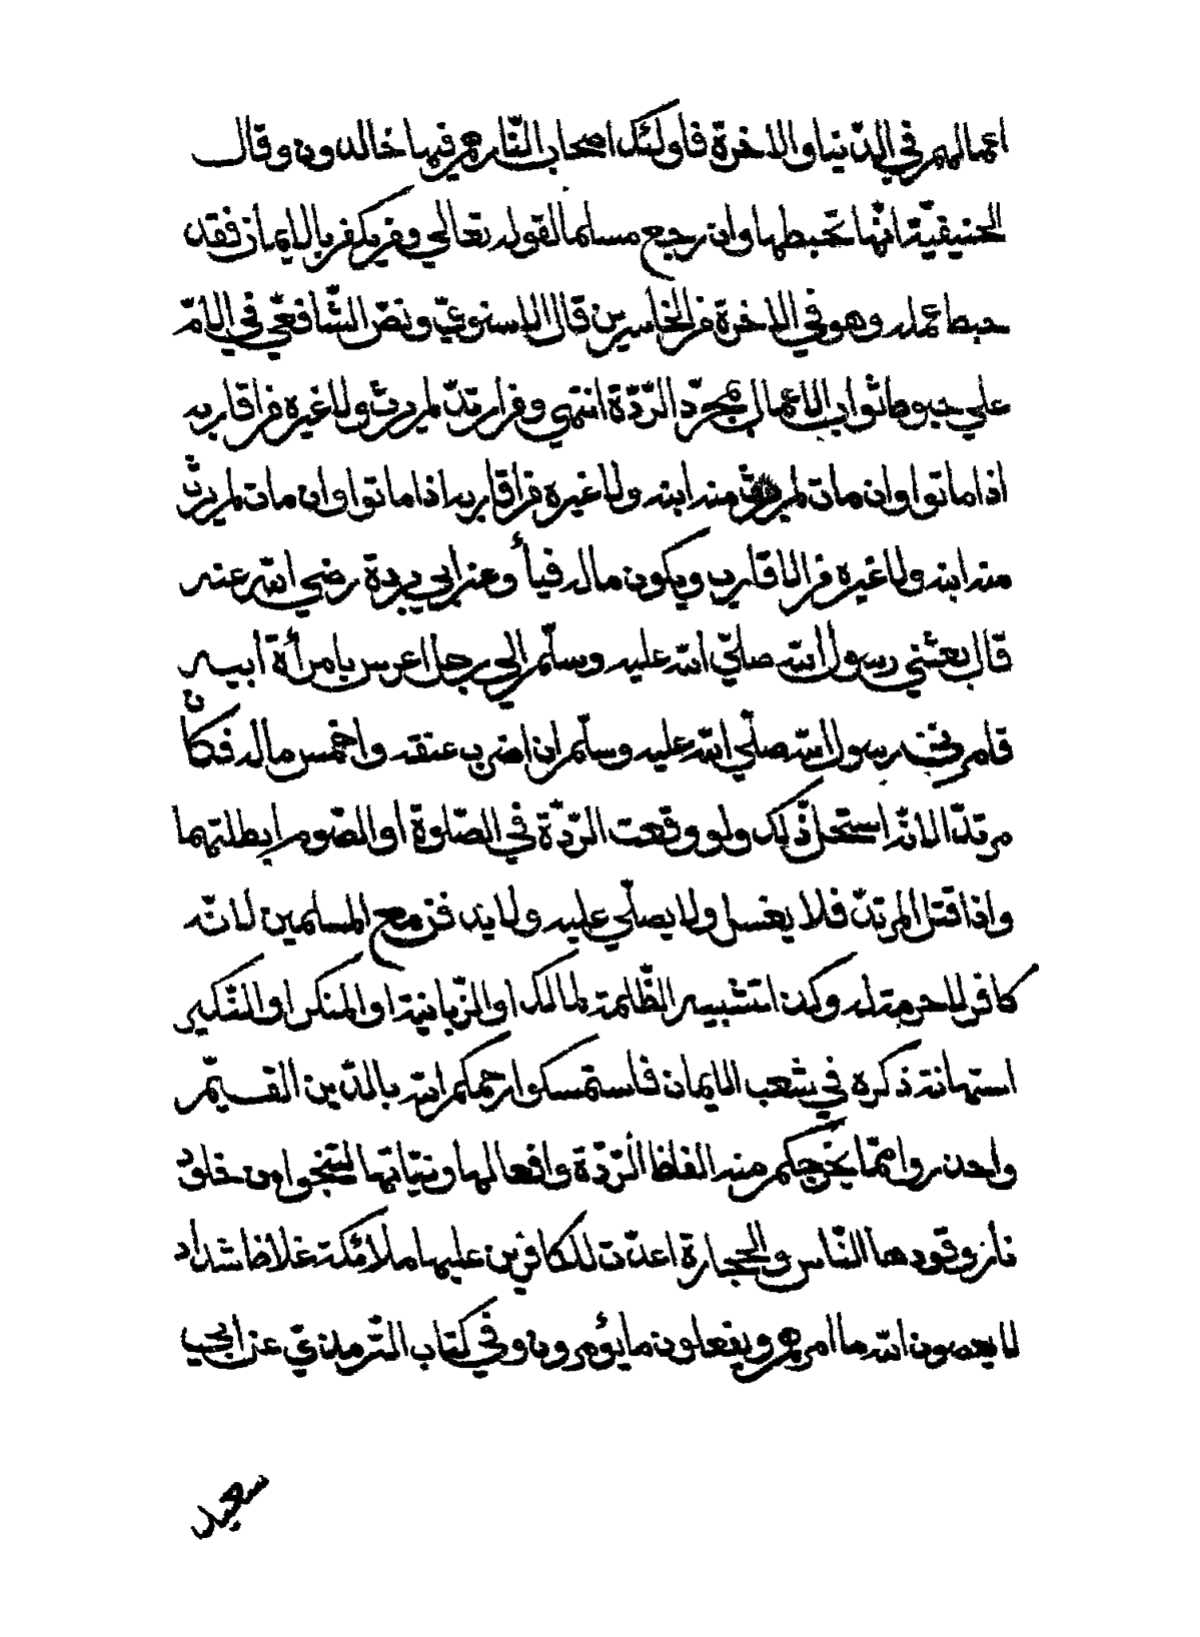 اعمالهم في الدّنيا والاخرة فاولئك اصحاب النّار هم فيها خالدون وقال
الحنيفيّة انّها تحبطها وان رجع مسلما لقوله تعالي ومن يكفر بالايمان فقد
حبط عمله وهو في الاخرة من الخاسرين قال الاسنوي ونصّ الشّافعي في الامّ
علي حبوط ثواب الاعمال بمجرّد الرّدّة انتهي ومن ارتدّ لم يرث ولا غيره من اقاربه
اذا ماتوا وان مات لم يرث منه ابنه ولا غيره من اقاربه اذا ماتوا وان مات لم يرث
منه ابنه ولا غيره من الاقارب ويكون ماله فيأ وعن ابي بردة رضي الله عنه
قال بعثني رسول الله صلّي الله عليه وسلّم الي رجل اعرس بامرأة ابيه
فامرني رسول الله صلّي الله عليه وسلّم ان اضرب عنقه واخمس ماله فكان
مرتدّا لانّه استحلّ ذلك ولو وقعت الرّدّة في الصّلوة او الصّوم ابطلتهما
واذا قتل المرتدّ فلا يغسل ولا يصلّي عليه ولا يدفن مع المسلمين لانّه
كافر لا حرمة له وكذا تشبيه الظّلمة بمالك او الزّبانية او المنكر او النّكير
استهانة ذكره في شعب الايمان فاستمسكوا رحمكم الله بالدّين القيّم
واحذروا ممّا يخرجكم منه الفاظ الرّدّة وافعالها ونيّاتها لتنجوا من خلود
نار وقودها النّاس والحجارة اعدّت للكافرين عليها ملائكة غلاظ شداد
لا يعصون الله ما امرهم ويفعلون ما يؤمرون وفي كتاب التّرمذيّ عن ابي
سعيد